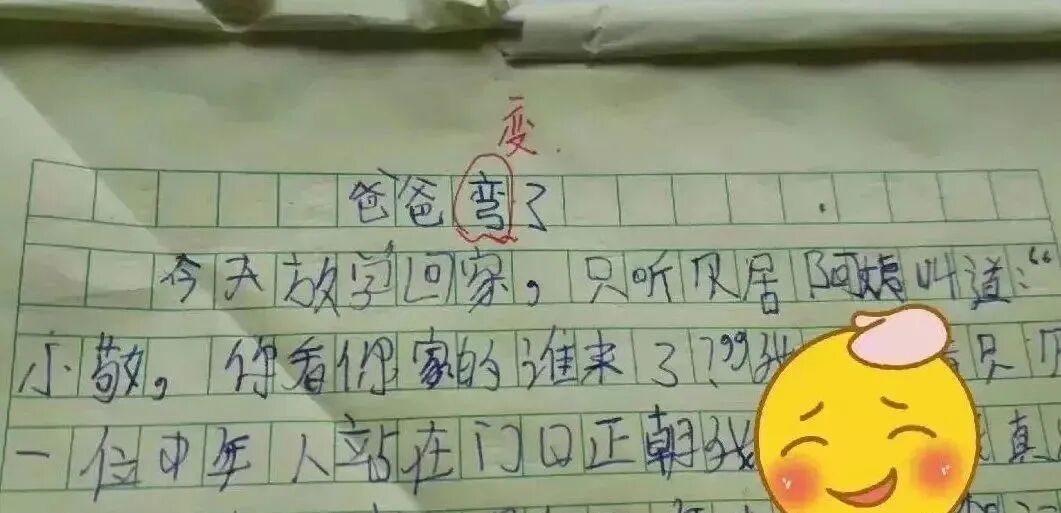 变
爸爸弯了
今天放学回家，只听见居阿姨叫道：“
小敬，你看你家的谁来了？”我 只
一位中年人站在门口正朝我 真